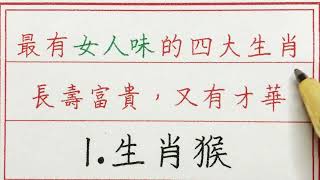 最有女人味的四大生肖
長壽富貴，又有才華
1.生肖猴